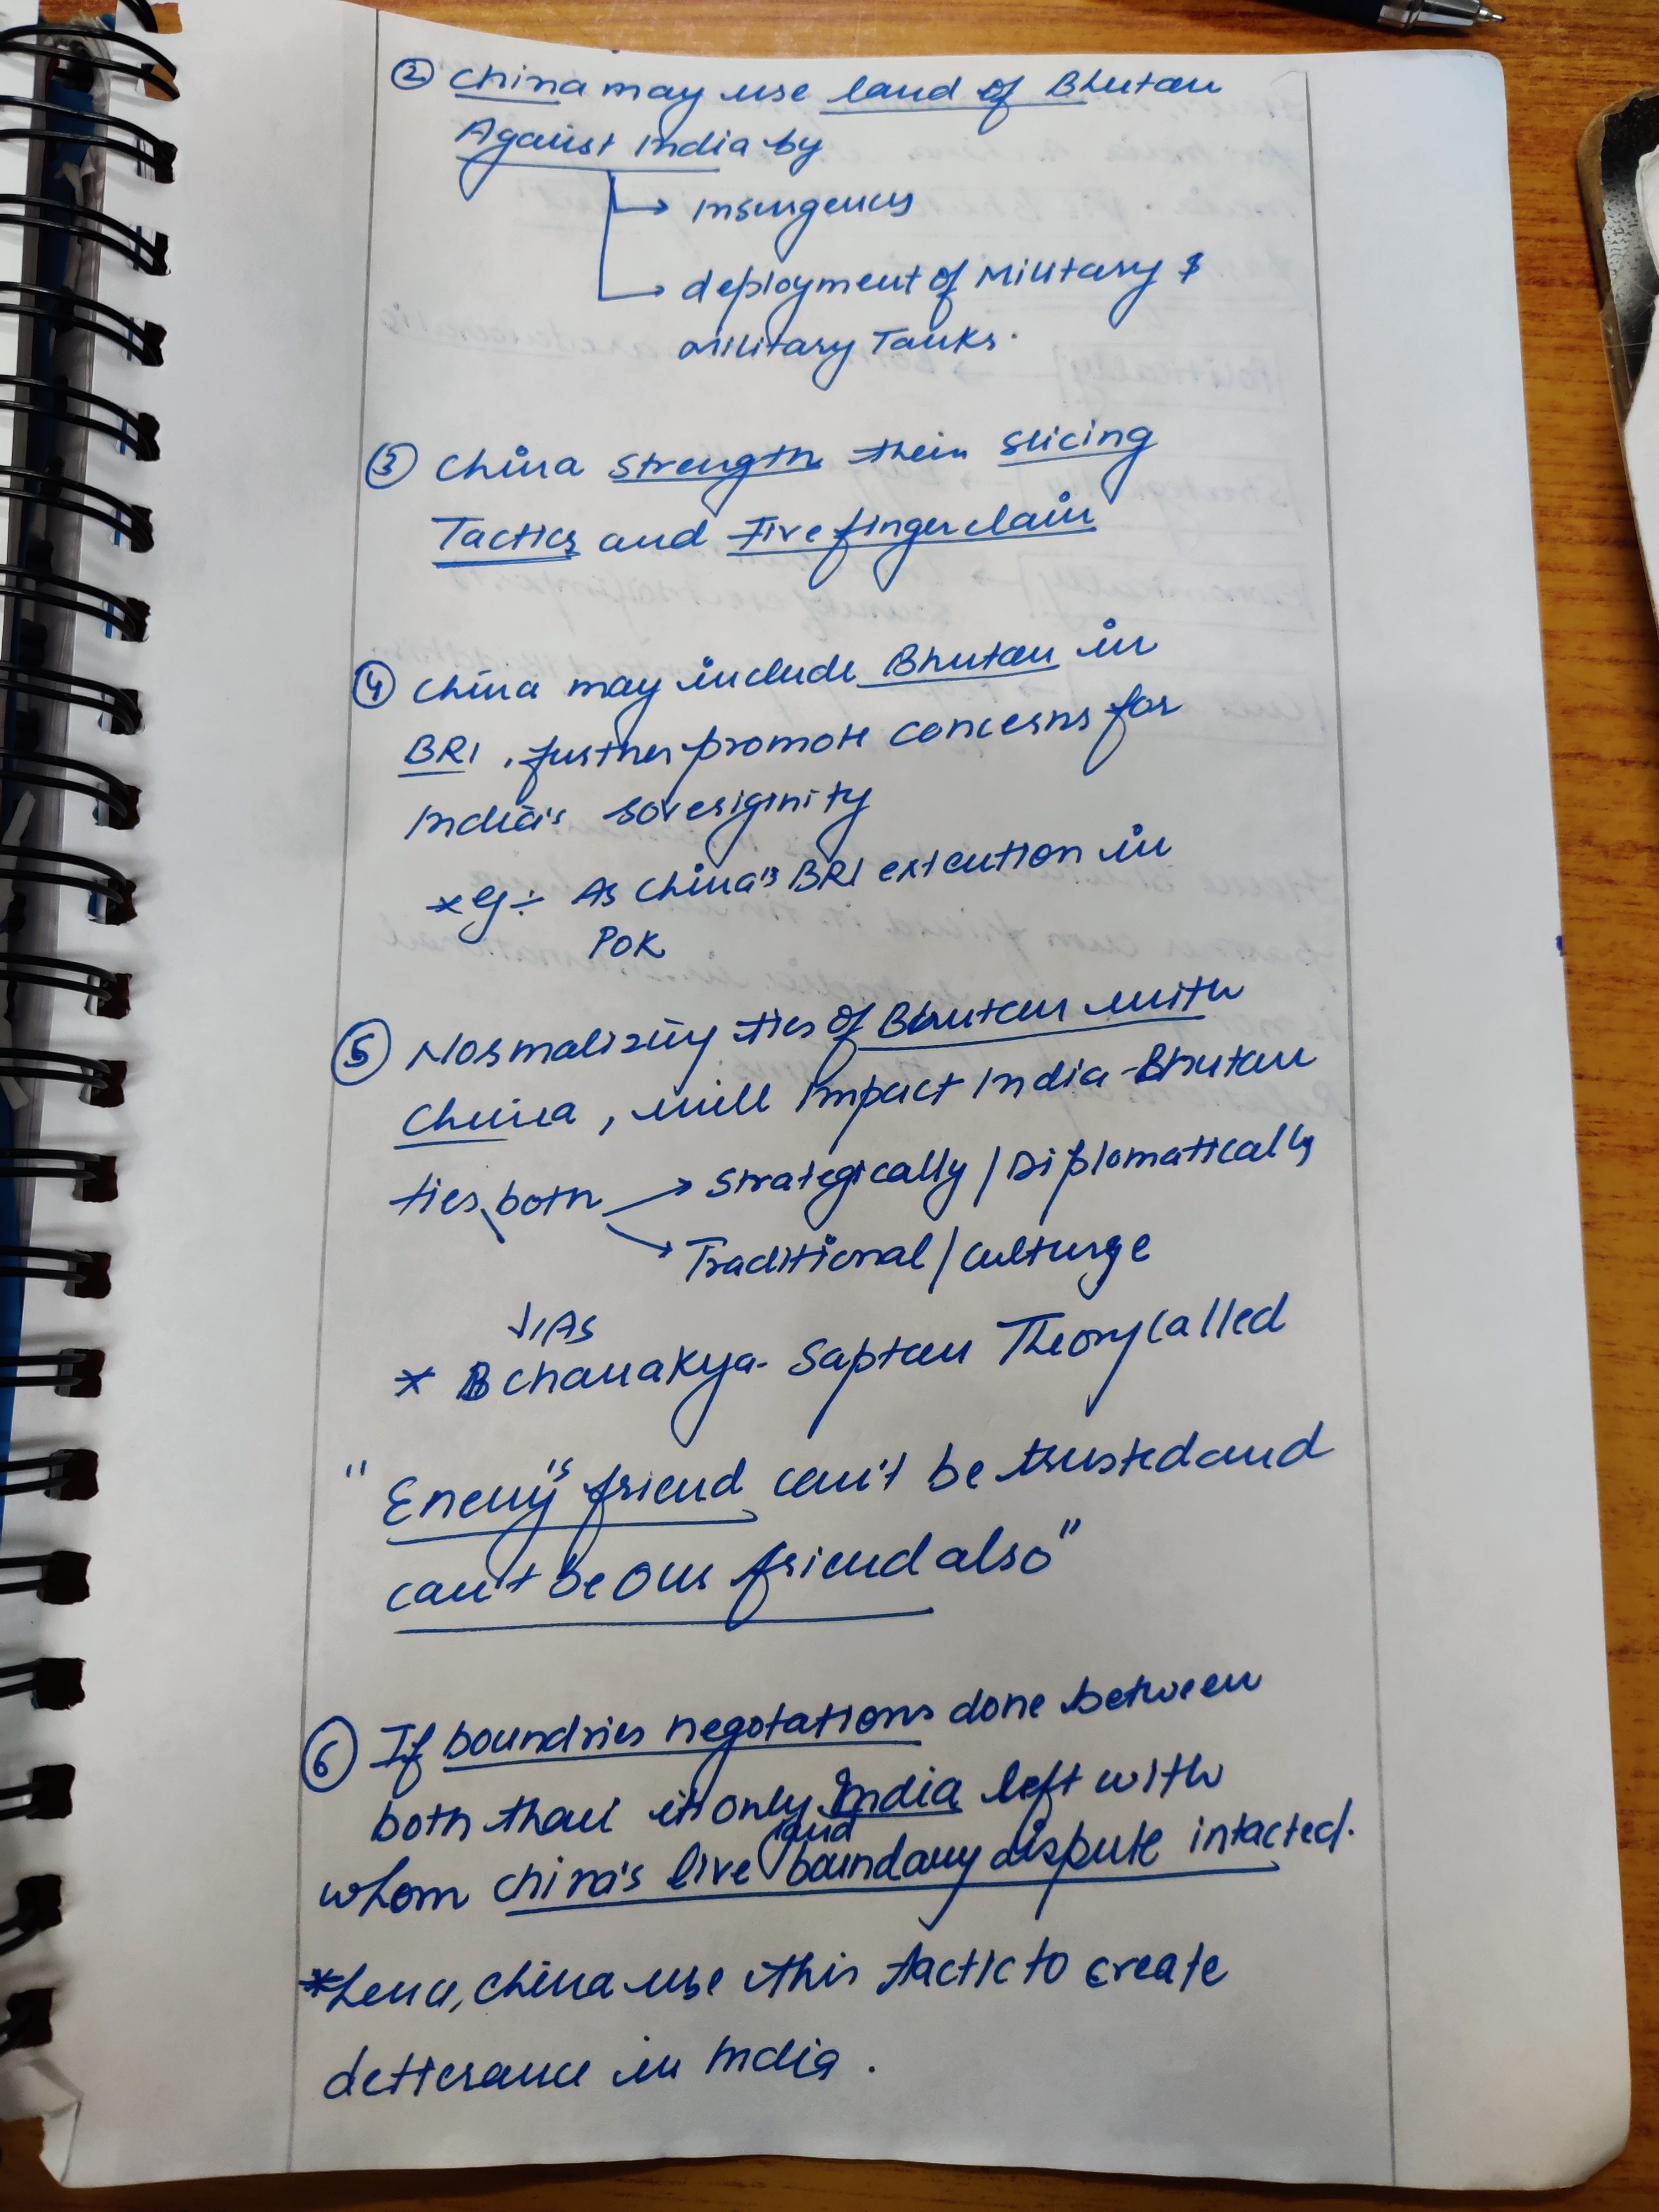 ② China may use land of Bhutan
Against India by
→ insurgency
→ deployment of Military &
military Tanks.
③ China strength their slicing
Tactics and Five finger claim
④ China may include Bhutan in
BRI, further promote concerns for
India's soveriginity
* eg ÷ As China's BRI execution in
POK
⑤ Normalizing ties of Bhutan with
China, will impact India-Bhutan
ties, both → Strategically / Diplomatically
→ Traditional / culturge
↓ As
* Chanakya- Saptan Theory called
"Enemy's friend can't be trusted and
can't be our friend also"
⑥ If boundries negotations done between
both than it only India left with
whom china's live land boundary dispute intacted.
* hence, china use this tactic to create
detterance in India.